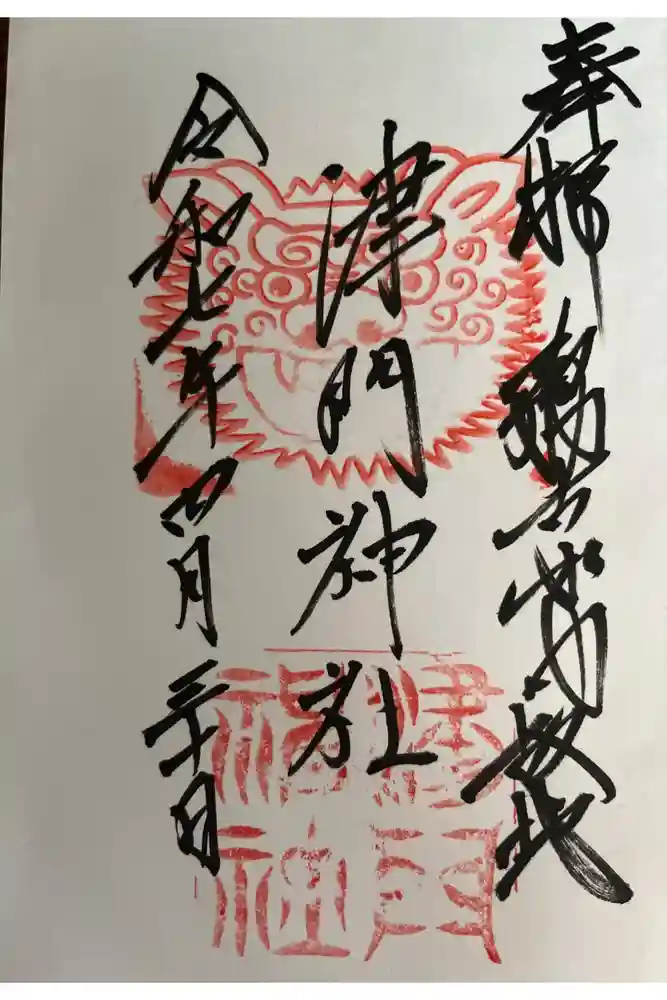 奉拝
津門神社
令和七年四月三十日
津門神社